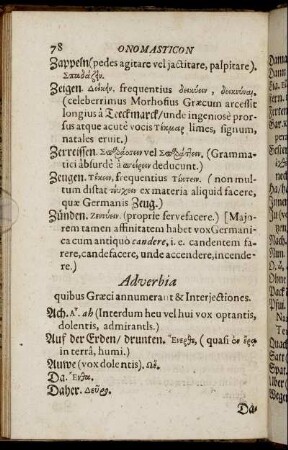 78 ONOMASTICON
Zappeln (pedes agitare vel jactitare, palpitare).
Σπαδάζειν.
Zeigen. Δεικεῖν, frequentius δεικνύειν, δεικνύναι.
(celeberrimus Morhofius Græcum arcessit
longius à Teeckmarck/ unde ingeniosè pror-
sus atque acutè vocis Τέκμαρ limes, signum,
natales eruit.)
Zerreissen. vel (Gramma-
tici absurdè à deducunt.)
Zeugen. Τέκειν, frequentius Τίκτειν. (non mul-
tum distat τεύχειν ex materia aliquid facere,
quæ Germanis Zeug.)
Zünden. (proprie fervefacere.) [Majo-
rem tamen affinitatem habet vox Germani-
ca cum antiquò candere, i. e. candentem fa-
cere, candefacere, unde accendere, incende-
re.)
Adverbia
quibus Græci annumerant & Interjectiones.
Ach. ab (Interdum heu vel hui vox optantis,
dolentis, admirantis.)
Auf der Erden/ drunten. Ἔνερθε, (quasi
in terrâ, humi.)
Auwe (vox dolentis).
Da. Ἔνθα.
Daher. Δεῦρο.
Da-